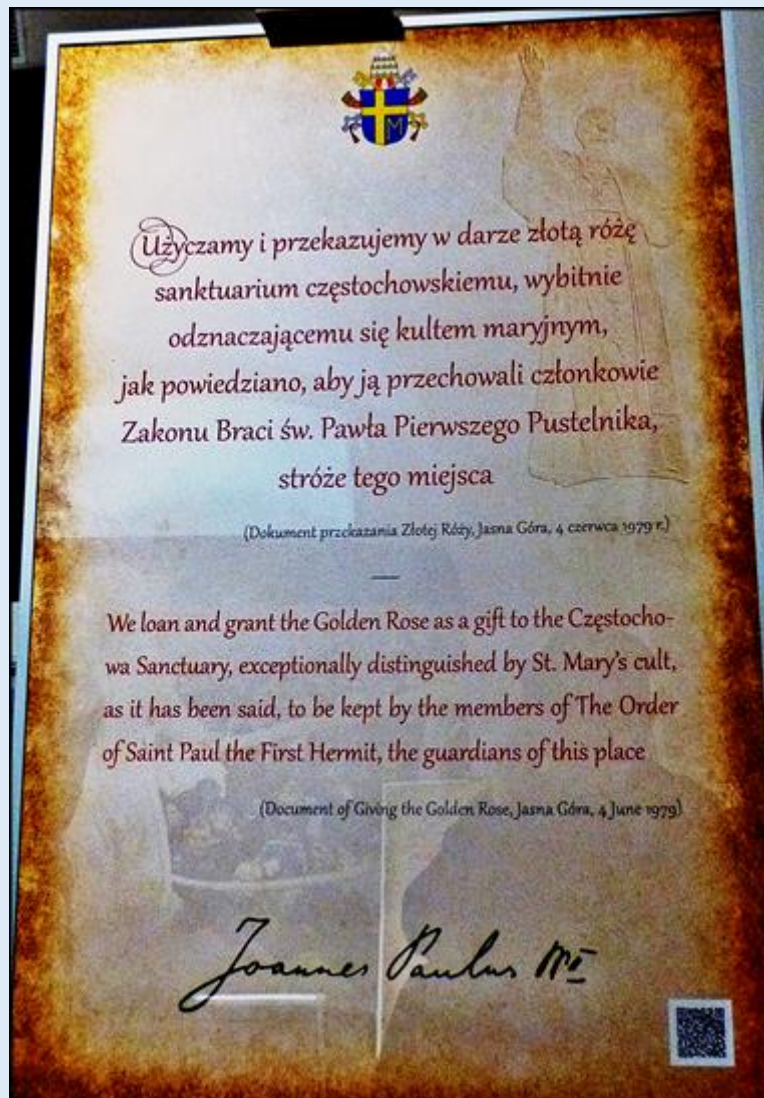 M
Użyczamy i przekazujemy w darze złotą różę
sanktuarium częstochowskiemu, wybitnie
odznaczającemu się kultem maryjnym,
jak powiedziano, aby ją przechowali członkowie
Zakonu Braci św. Pawła Pierwszego Pustelnika,
stróże tego miejsca
(Dokument przekazania Złotej Róży, Jasna Góra, 4 czerwca 1979 r.)
We loan and grant the Golden Rose as a gift to the Częstocho-
wa Sanctuary, exceptionally distinguished by St. Mary's cult,
as it has been said, to be kept by the members of The Order
of Saint Paul the First Hermit, the guardians of this place
(Document of Giving the Golden Rose, Jasna Góra, 4 June 1979)
Joannes Paulus PP. II